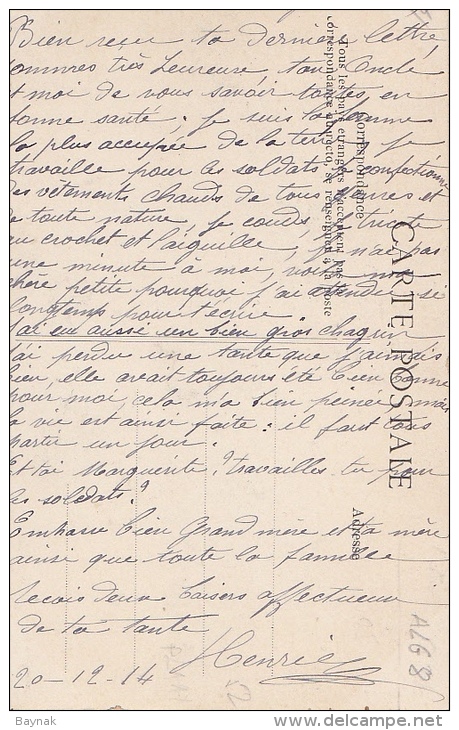 Bien reçu ta dernière lettre,
sommes très heureuse, ton Oncle
et moi de vous savoir toutes en
bonne santé; je suis la femme
la plus occupée de la terre, je
travaille pour les soldats, je confectionne
des vêtements chauds de tous genres et
de toute nature je couds, je tricote
au crochet et l'aiguille, je n'ai pas
une minute à moi, voilà ma
chère petite pourquoi j'ai attendu si
longtemps pour t'écrire.
J'ai eu aussi un bien gros chagrin
j'ai perdu une tante que j'aimais
bien, elle avait toujours été bien bonne
pour moi, cela m'a bien peinée mais
la vie est ainsi faite: il faut tous
partir un jour.
Et toi Marguerite, travailles-tu pour
les soldats?
Embrasse bien Grand mère et ta mère
ainsi que toute la famille
Reçois deux baisers affectueux
de ta tante
Henrie
20-12-14
CARTE POSTALE
Correspondance
Tous les pays étrangers n'acceptent pas la
correspondance au recto, se renseigner à la poste
Adresse
A2G8
Baynak
www.delcampe.net